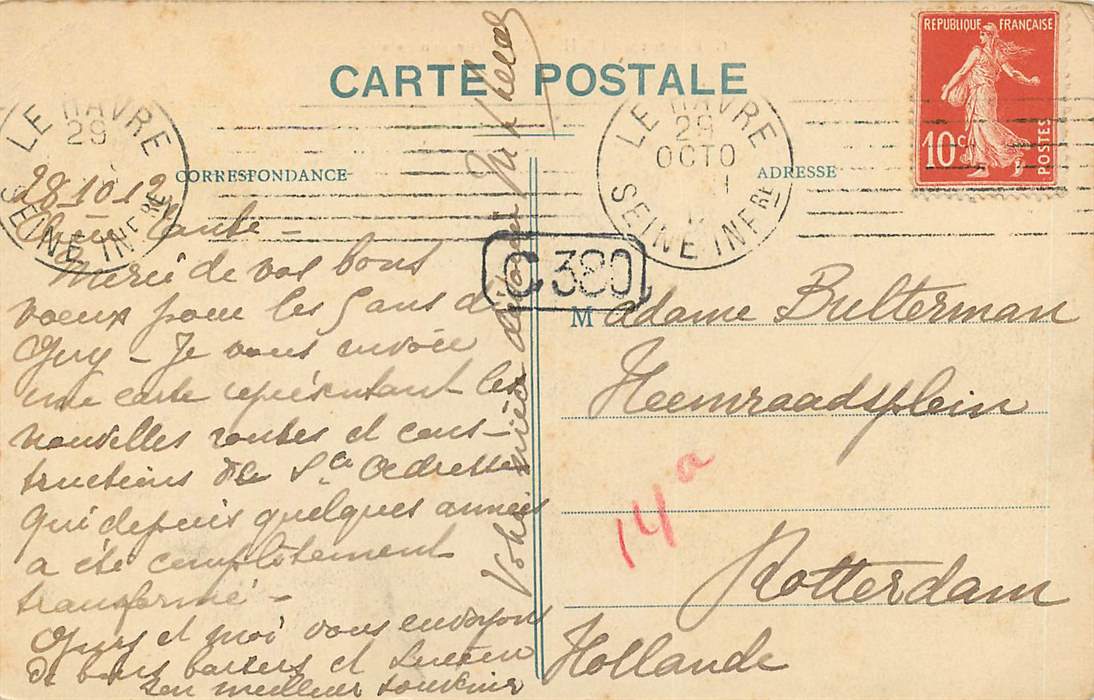 CARTE POSTALE
REPUBLIQUE FRANÇAISE
10c POSTES
LE HAVRE
29
SEINE INFRE
LE HAVRE
29
OCTO
SEINE INFRE
CORRESPONDANCE
ADRESSE
C 380
28.10.12
Chère Tante -
Merci de vos bons
voeux pour les 5 ans de
Guy - Je vous envoie
une carte représentant les
nouvelles routes et cons-
tructions de Ste Adresse
qui depuis quelques années
a été complètement
transformé -
et moi vous envoyons
de bons baisers et Lucien
son meilleur souvenir
Votre nièce
Madame Bulterman
Heemraadsplein
14a
Rotterdam
Hollande